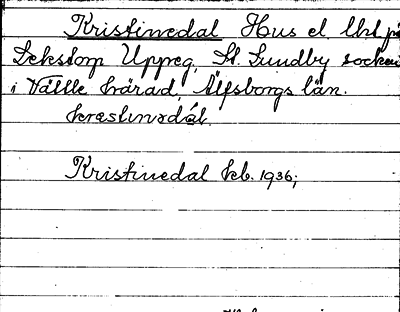 Kristinedal Hus el. lht på
Sekstorp Uppreg. St. Lundby socken
i Vättle härad, Älfsborgs län.
krestinədál.
Kristinedal kb. 1936;